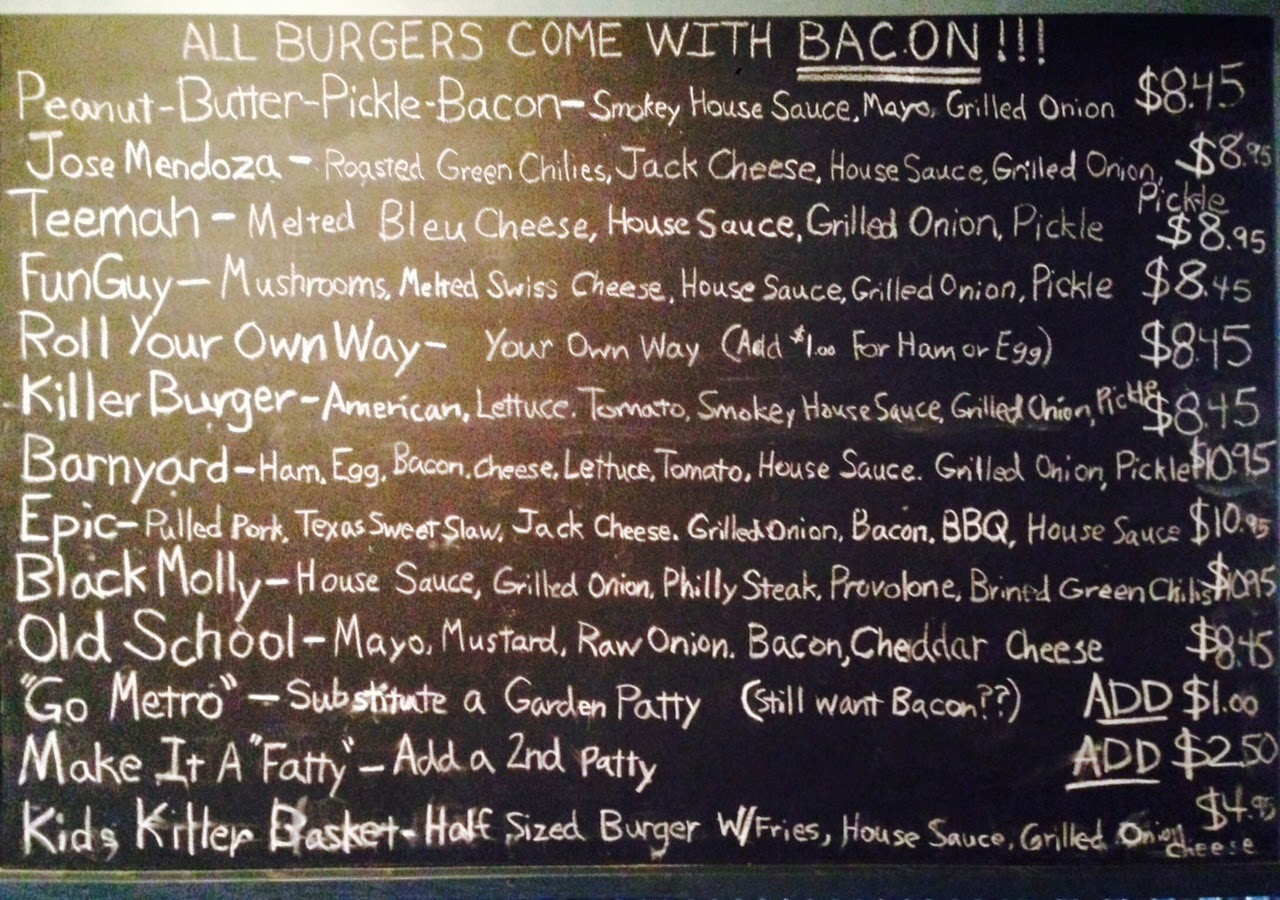 ALL BURGERS COME WITH BACON!!!
Peanut-Butter-Pickle-Bacon- Smokey House Sauce, Mayo, Grilled Onion $8.45
Jose Mendoza - Roasted Green Chilies, Jack Cheese, House Sauce, Grilled Onion, $8.95
Pickle
Teemah - Melted Bleu Cheese, House Sauce, Grilled Onion, Pickle $8.95
FunGuy- Mushrooms, Melted Swiss Cheese, House Sauce, Grilled Onion, Pickle $8.45
Roll Your Own Way- Your Own Way (Add $1.00 For Ham or Egg) $8.45
Killer Burger- American, Lettuce. Tomato, Smokey House Sauce, Grilled Onion, Pickle $8.45
Barnyard- Ham, Egg, Bacon, cheese, Lettuce, Tomato, House Sauce. Grilled Onion, Pickle $10.95
Epic- Pulled Pork, Texas Sweet Slaw, Jack Cheese. Grilled Onion, Bacon, BBQ, House Sauce $10.95
Black Molly- House Sauce, Grilled Onion, Philly Steak, Provolone, Brined Green Chilis $10.95
Old School- Mayo, Mustard, Raw Onion. Bacon, Cheddar Cheese $8.45
"Go Metro" - Substitute a Garden Patty (Still want Bacon??) ADD $1.00
Make It A "Fatty"- Add a 2nd Patty ADD $2.50
Kids Killer Basket- Half Sized Burger W/Fries, House Sauce, Grilled Onion $4.95
cheese